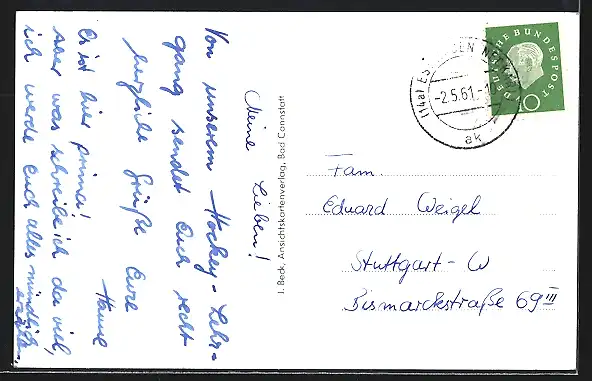 Meine Lieben!
Von unserem Hockey-Lehr-
gang sendet Euch recht
herzliche Grüße Eure
Hanne
Es ist hier prima!
Aber was schreibe ich da viel,
ich werde Euch alles mündlich
erzählen.
I. Beck, Ansichtskartenverlag, Bad Cannstatt
DEUTSCHE BUNDESPOST
10
(14a) ESSLINGEN NECKAR
-2.5.61.-
ak
Fam.
Eduard Weigel
Stuttgart-W
Bismarckstraße 69 III